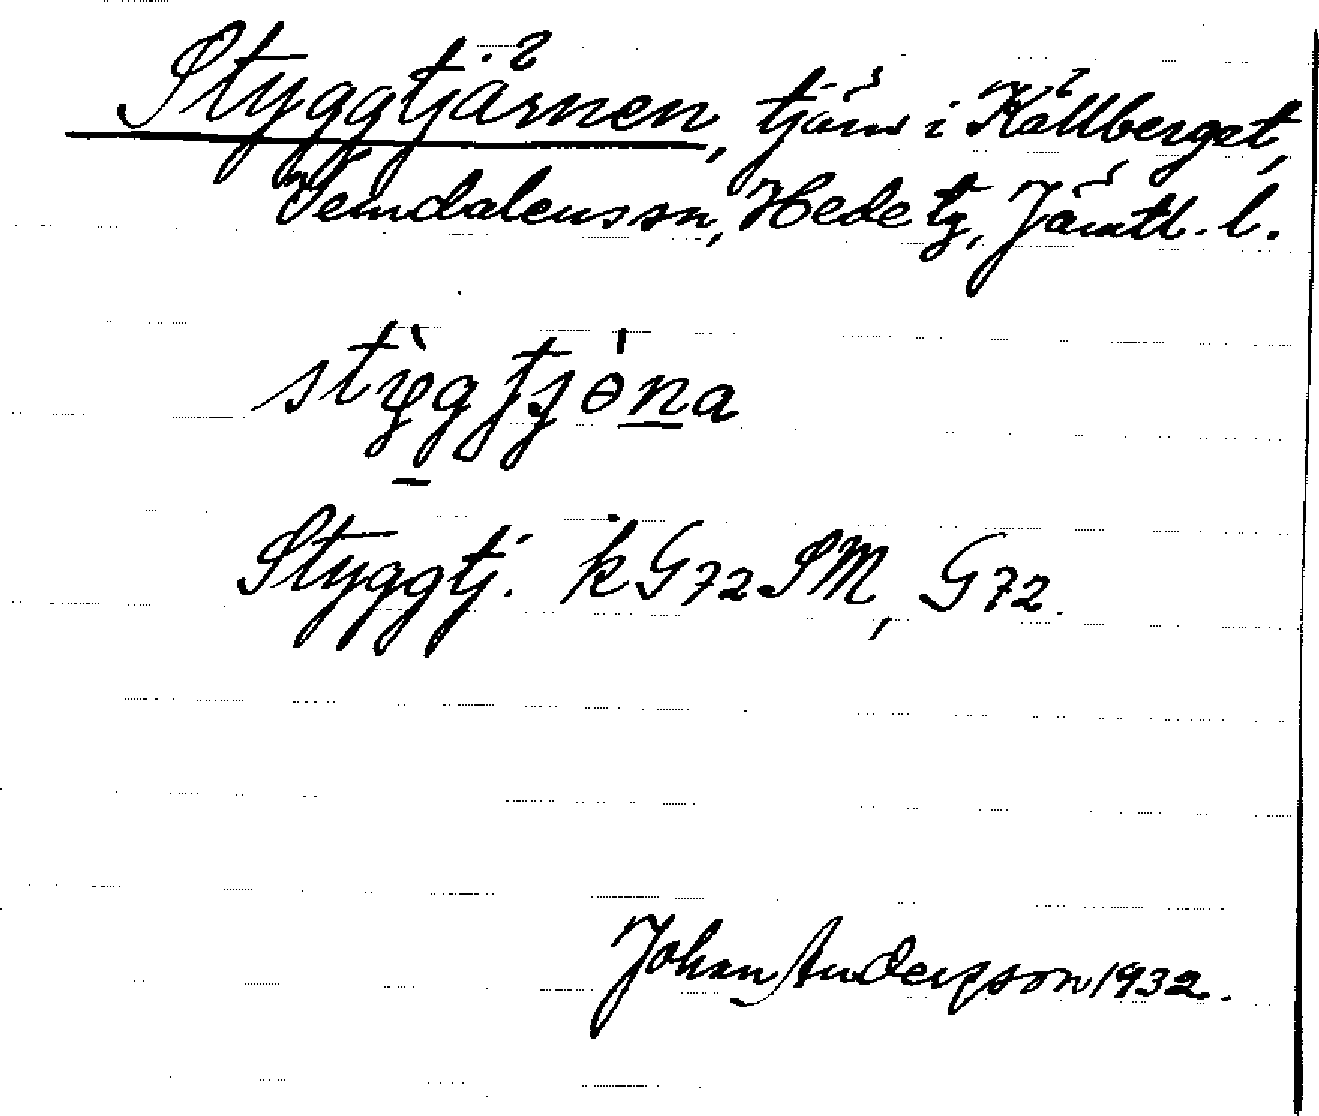 Styggtjärnen, tjärn i Källberget,
Vemdalens sn, Hede tg, Jämtl. l.
stygtjöna
Styggtj. k G72 SM, G72.
Johan Anderson 1932.